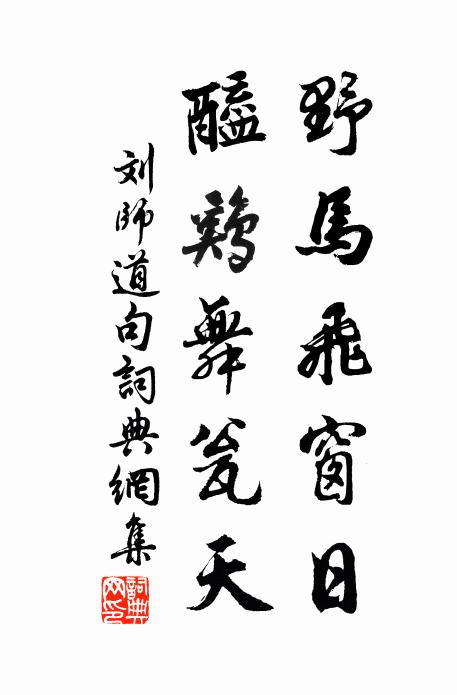 野馬飛窗日
醯鷄舞瓮天
刘師道句詞典網集
詞典网印